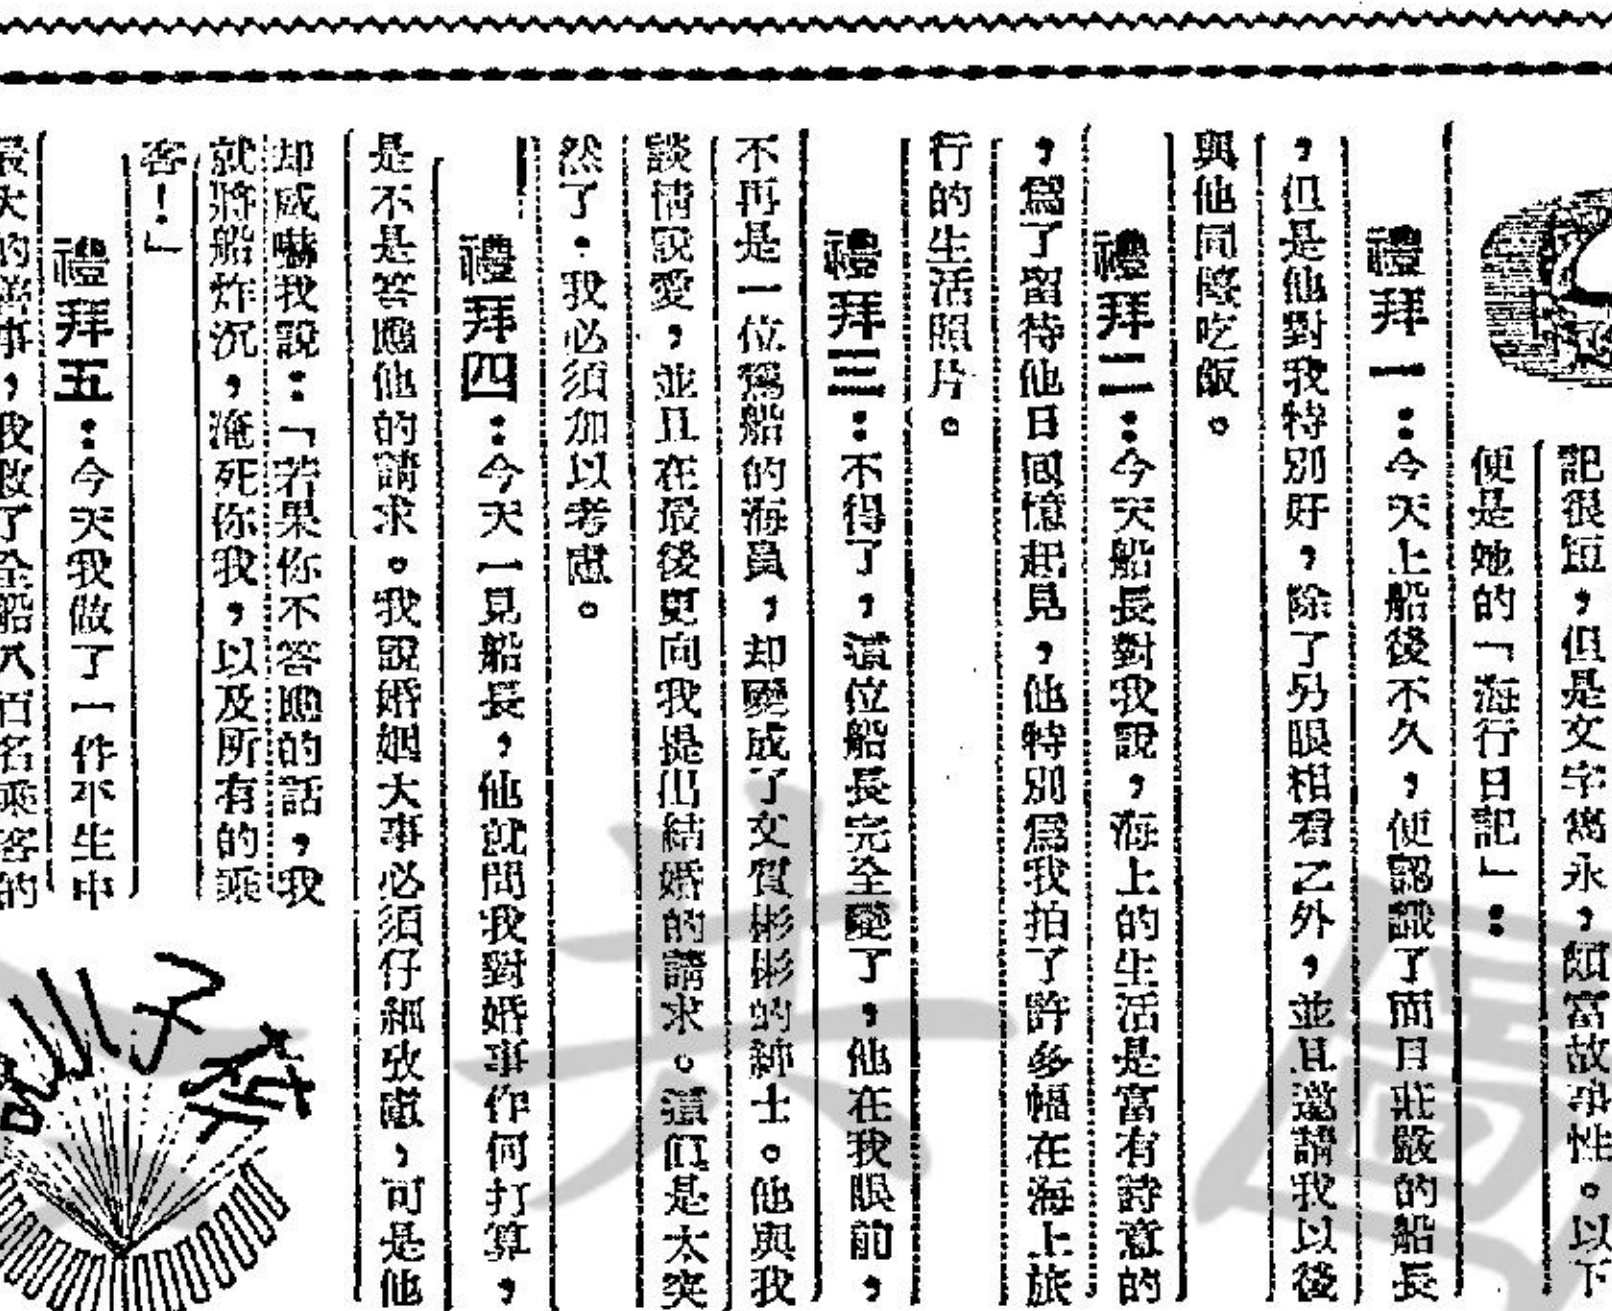 記很短，但是文字雋永，頗富故事性。以下
便是她的「海行日記」：
禮拜一：今天上船後不久，便認識了面目莊嚴的船長
，但是他對我特別好，除了另眼相看之外，並且邀請我以後
與他同檯吃飯。
禮拜二：今天船長對我說，海上的生活是富有詩意的
，爲了留待他日回憶起見，他特別爲我拍了許多幅在海上旅
行的生活照片。
禮拜三：不得了，這位船長完全變了，他在我眼前，
不再是一位駕船的海員，却變成了文質彬彬的紳士。他與我
談情說愛，並且在最後更向我提出結婚的請求。這眞是太突
然了．我必須加以考慮。
禮拜四：今天一見船長，他就問我對婚事作何打算，
是不是答應他的請求。我說婚姻大事必須仔細攷慮，可是他
却威嚇我說：「若果你不答應的話，我
就將船炸沉，淹死你我，以及所有的乘
客！」
禮拜五：今天我做了一件平生中
最大的善事，我救了全船八百名乘客的